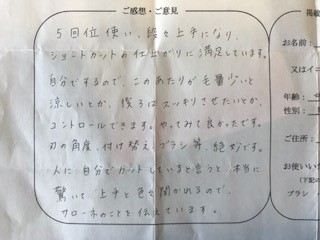 ご感想・ご意見
5回位使い、段々上手になり、
ショートカットの仕上がりに満足しています。
自分でするので、このあたりが毛量少いと
涼しいとか、後ろはスッキリさせたいとか、
コントロールできます。やってみて良かったです。
刃の角度、付け替え、ブラシ等、絶妙です。
人に、自分でカットしていると言うと、本当に
驚いて、上手と色々聞かれるので、
サローネのことを伝えています。
掲載
お名前：
又はイニ
年齢：
性
ご住所：
お使いい
(下記の
ブラシ